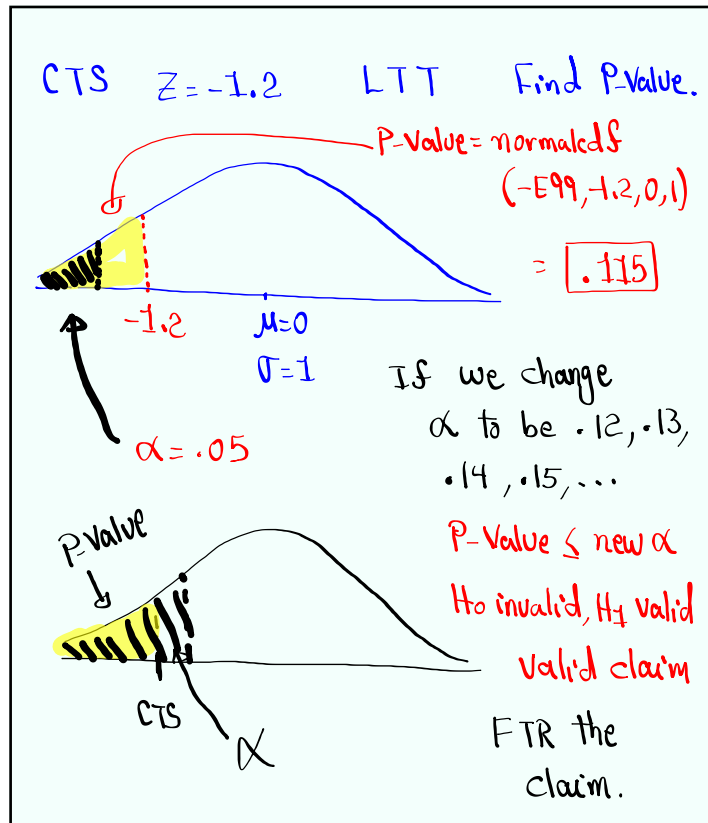 CTS Z=-1.2 LTT Find P-Value.
P-Value = normalcdf
(-E99,-1.2,0,1)
= .115
-1.2 μ=0
σ=1
α=.05
If we change
α to be .12, .13,
.14, .15, ...
P-Value
P-Value ≤ new α
H0 invalid, H1 valid
Valid claim
CTS
α
FTR the
claim.